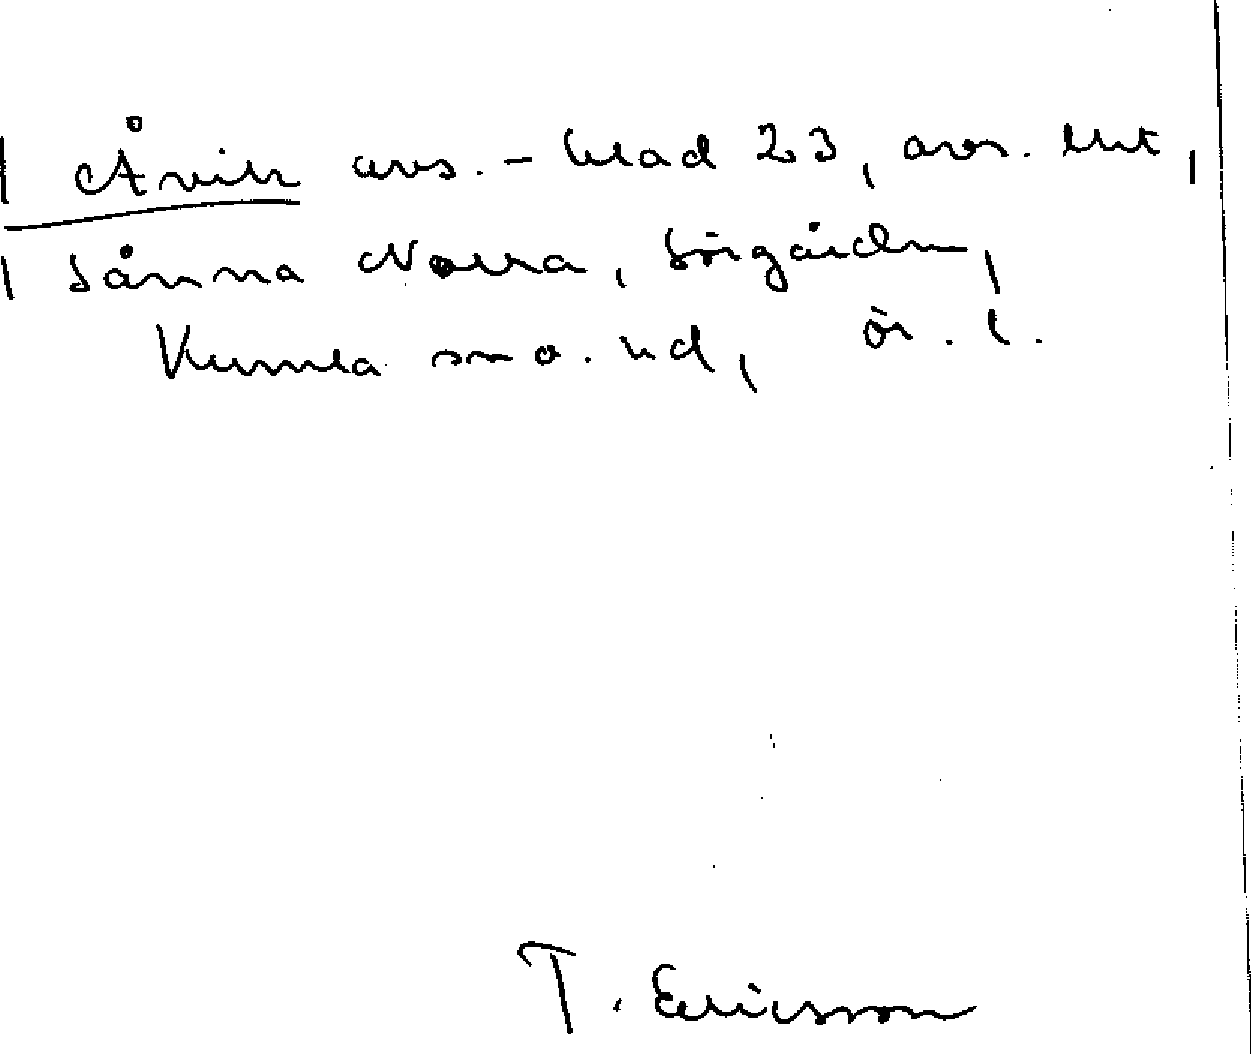 Åvik avs. - blad 23, avs.
Sånna Norra, Sörgården,
Kumla sn o. hd, ör. l.
T. Ericsson